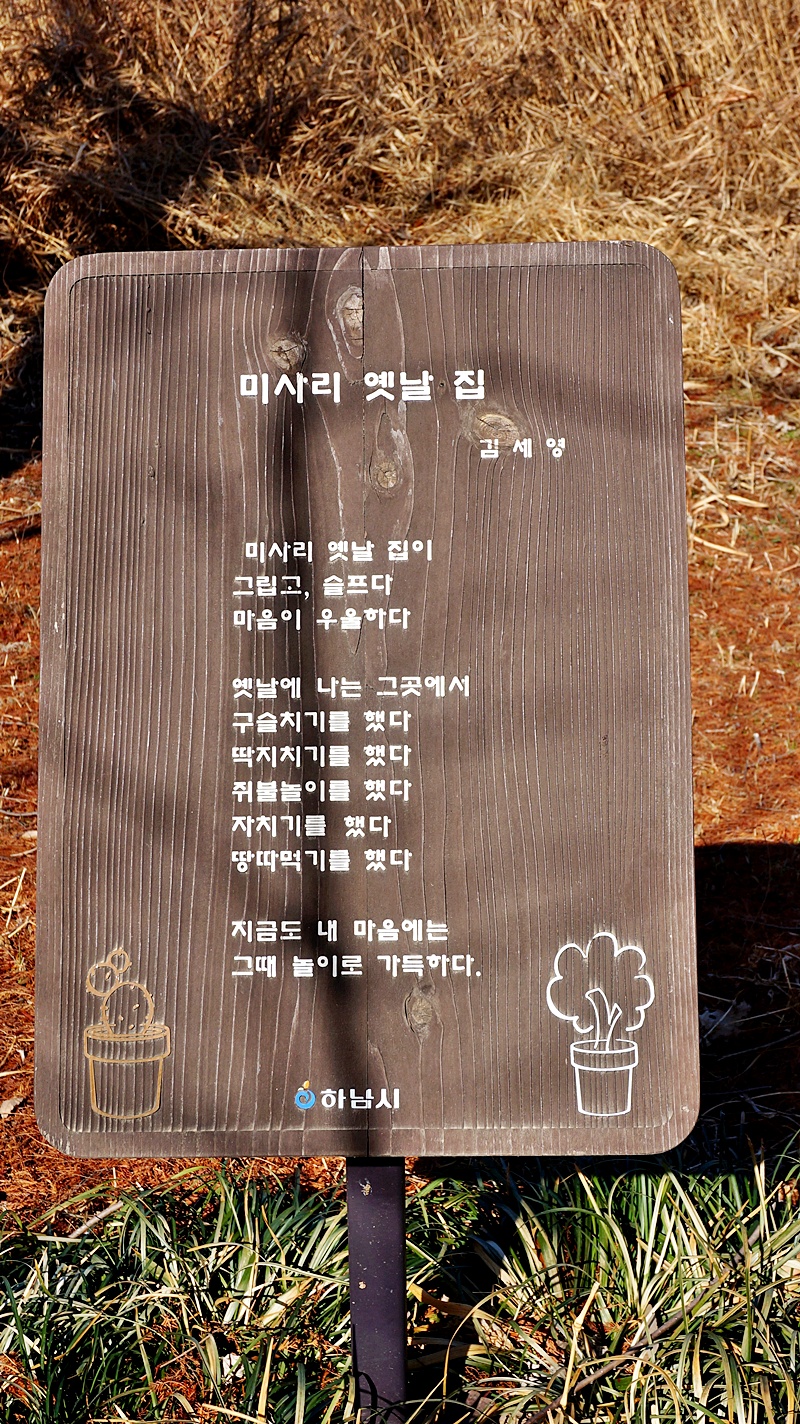 미사리 옛날 집
김세영
미사리 옛날 집이
그립고, 슬프다
마음이 우울하다
옛날에 나는 그곳에서
구슬치기를 했다
딱지치기를 했다
쥐불놀이를 했다
자치기를 했다
땅따먹기를 했다
지금도 내 마음에는
그때 놀이로 가득하다.
하남시